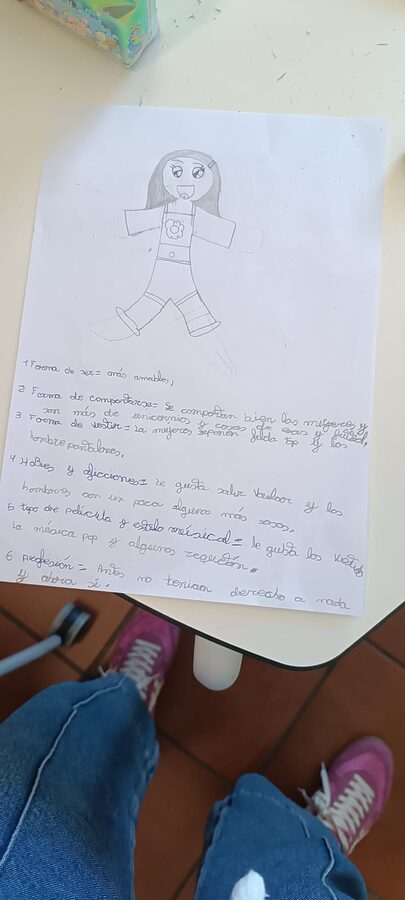 1 Forma de ser = más amables,
2 Forma de comportarse = Se comportan bien las mujeres y
son más de unicornios y cosas de esas y
3 Forma de vestir = La mujeres se ponen falda top y los
hombre pantalones.
4 Hobies y aficciones = le gusta salir bailar y los
hombres son un poco algunos más sosos.
5 tipo de película y estilo músical = le gusta los
la música pop y algunos regueton.
6 profesión = Antes no tenian derecho a nada
y ahora si.